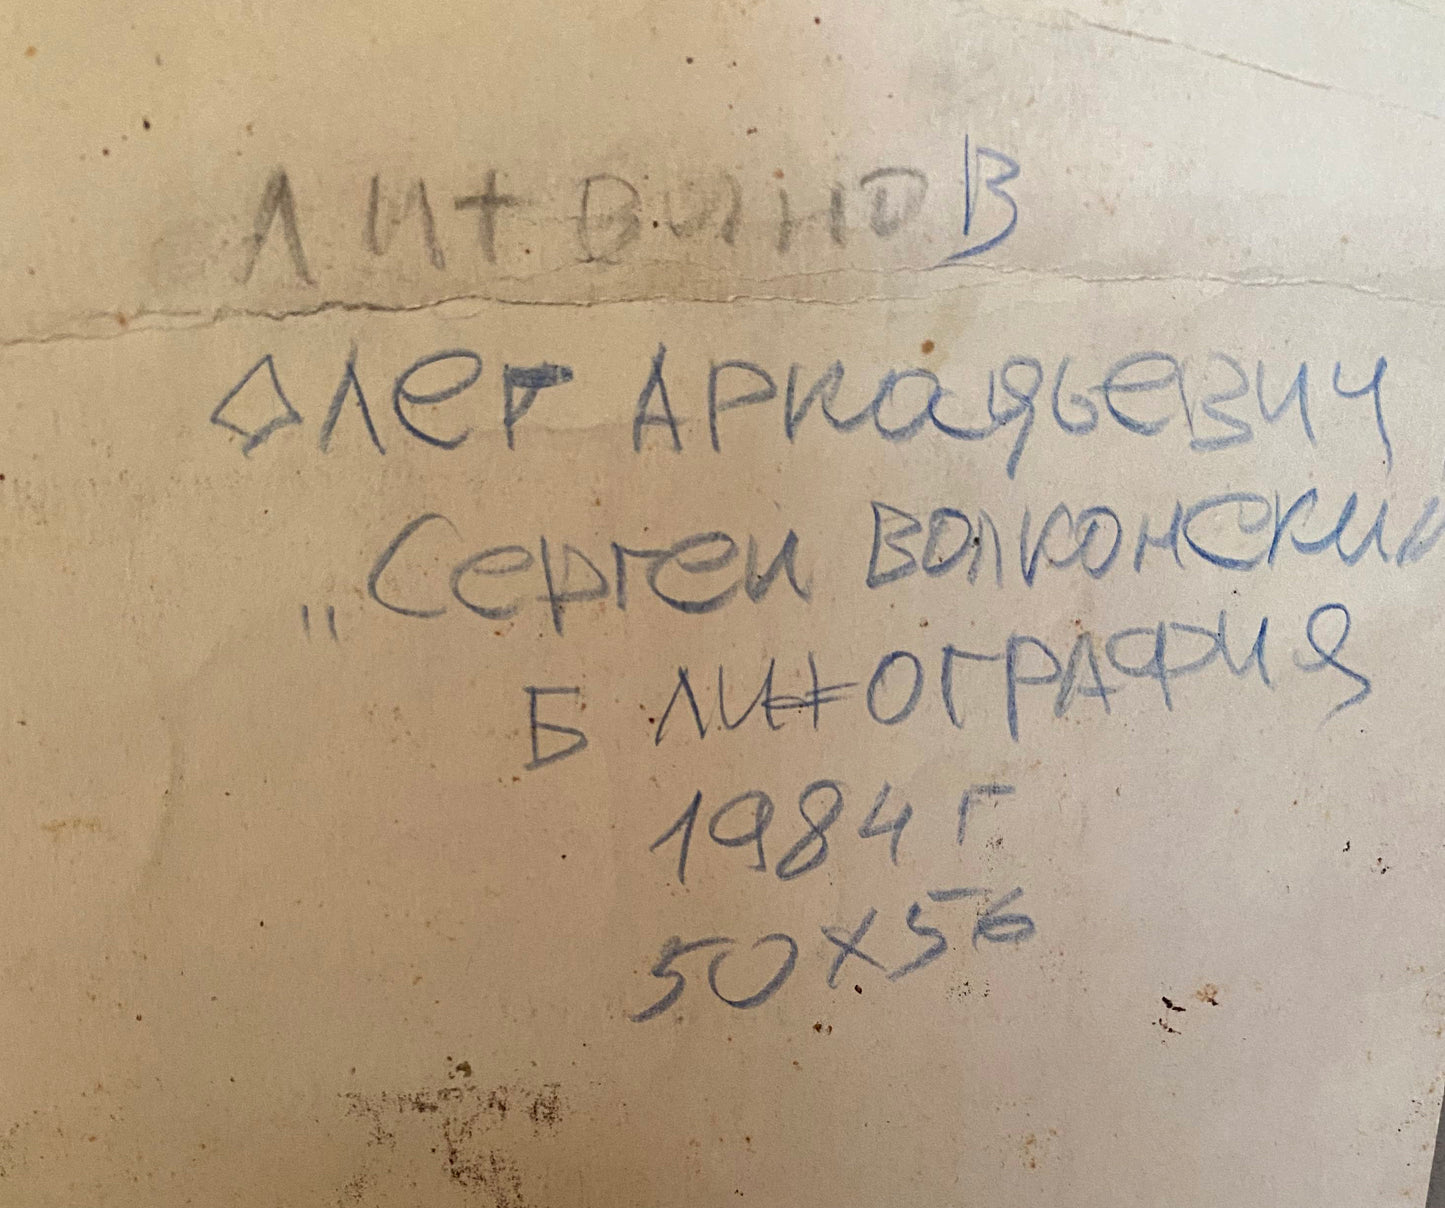 Литвинов
Олег Аркадьевич
„Сергей Волконский"
Б литография
1984 г
50х56